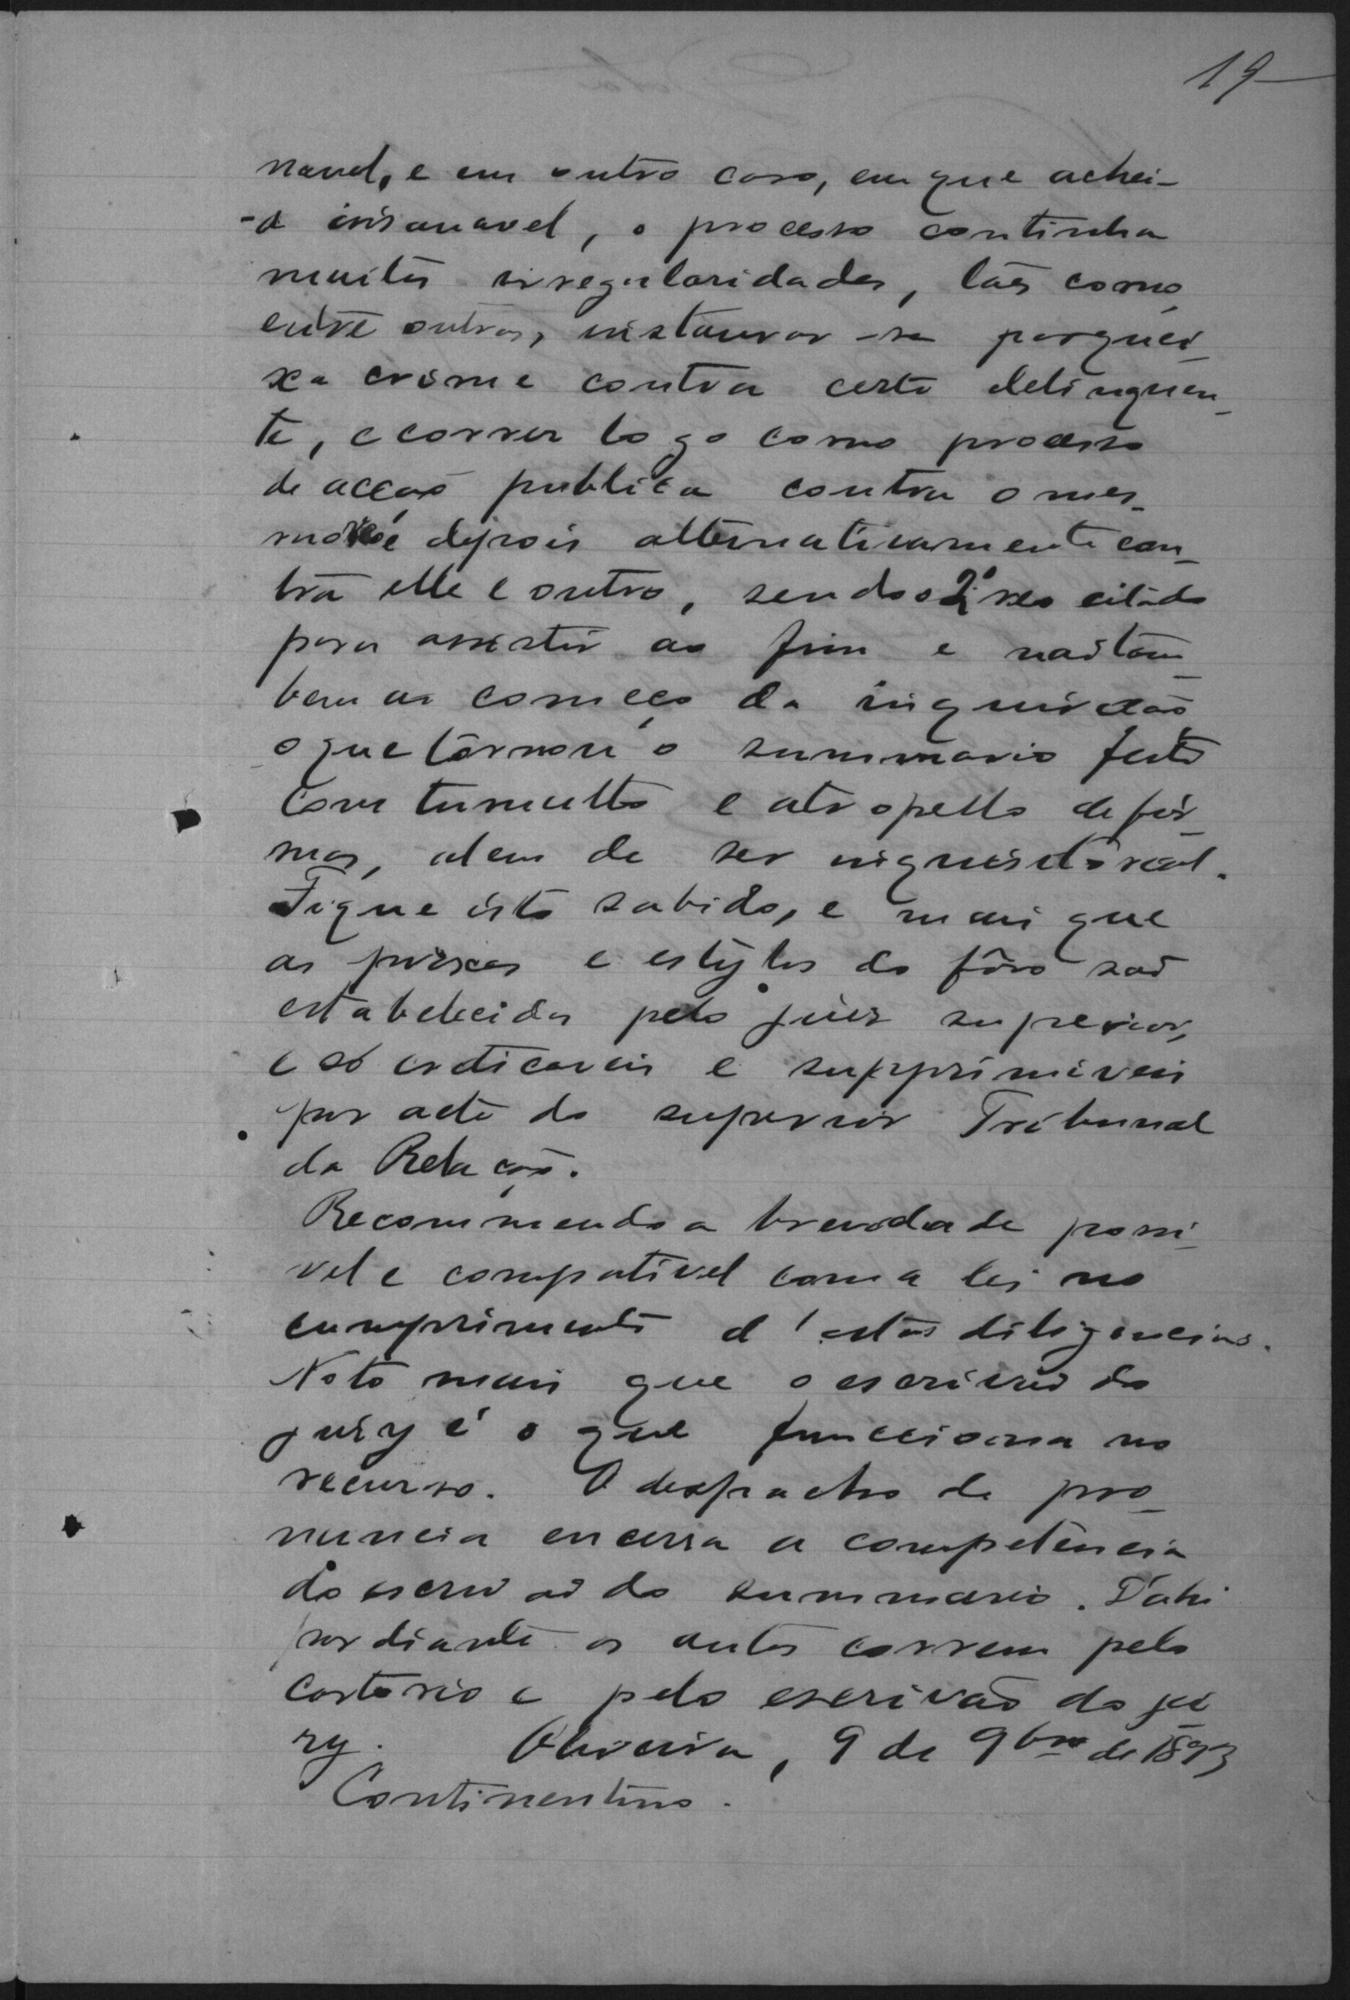 19
navel, e em outro caso, em que achei-
-a insanavel, o processo continha
muitas irregularidades, táes como,
entre outras, instaurar-se por quei-
xa crime contra certo delinquen-
te, e correr logo como processo
de acção publica contra o mes-
mo réo e depois alternativamente con-
tra elle e outro, sendo o 2º réo citado
para assistir ao fim e não tam-
bem ao começo da inquirição
o que tornou o summario feito
com tumulto e atropello de fór-
mas, alem de ser inquisitorial.
Fique isto sabido, e mais que
as praxes e estylos do fôro são
estabelecidos pelo juiz superior,
e só criticaveis e supprimiveis
por acto do superior Tribunal
da Relação.
Recommendo a brevidade possi-
vel e compativel com a lei no
cumprimento d'estas diligencias.
Noto mais que o escrivão do
jury é o que funcciona no
recurso. O despacho de pro-
nuncia encerra a competência
do escrivão do summario. D'ahi
por diante os autos correm pelo
cartorio e pelo escrivão do ju-
ry. Oliveira, 9 de 9bro de 1893
Continentino.